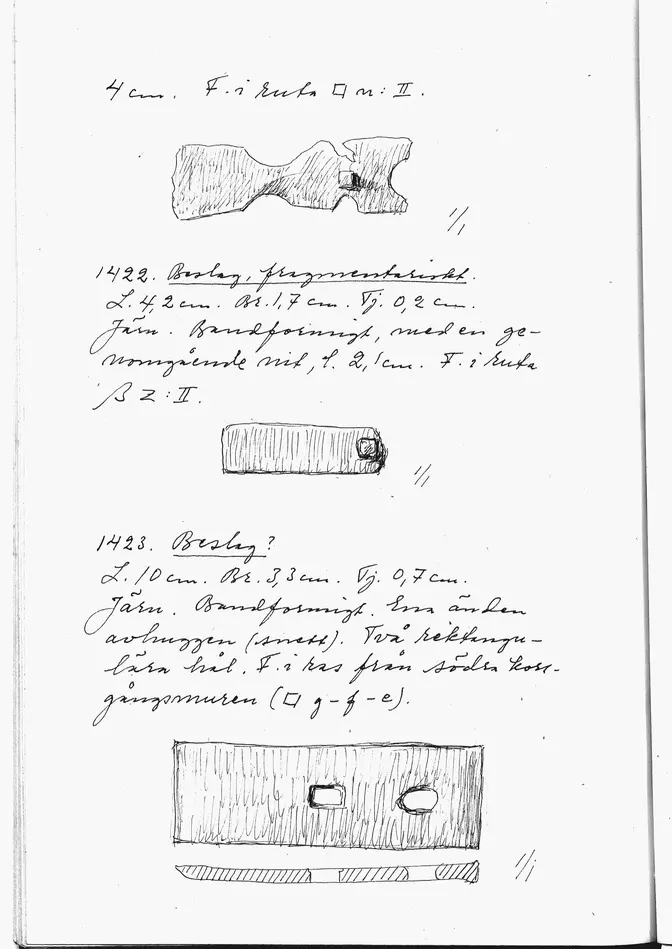 4 cm. F. i ruta □ n: II.
1/1
1422. Beslag, fragmentariskt.
L. 4,2 cm. Br. 1,7 cm. Tj. 0,2 cm.
Järn. Bandformigt, med en ge-
nomgående nit, l. 2,1 cm. F. i ruta
β z: II.
1/1
1423. Beslag?
L. 10 cm. Br. 3,3 cm. Tj. 0,7 cm.
Järn. Bandformigt. Ena änden
avhuggen (snett). Två rektangu-
lära hål. F. i ras från södra kors-
gångsmuren (□ g-f-e).
1/1